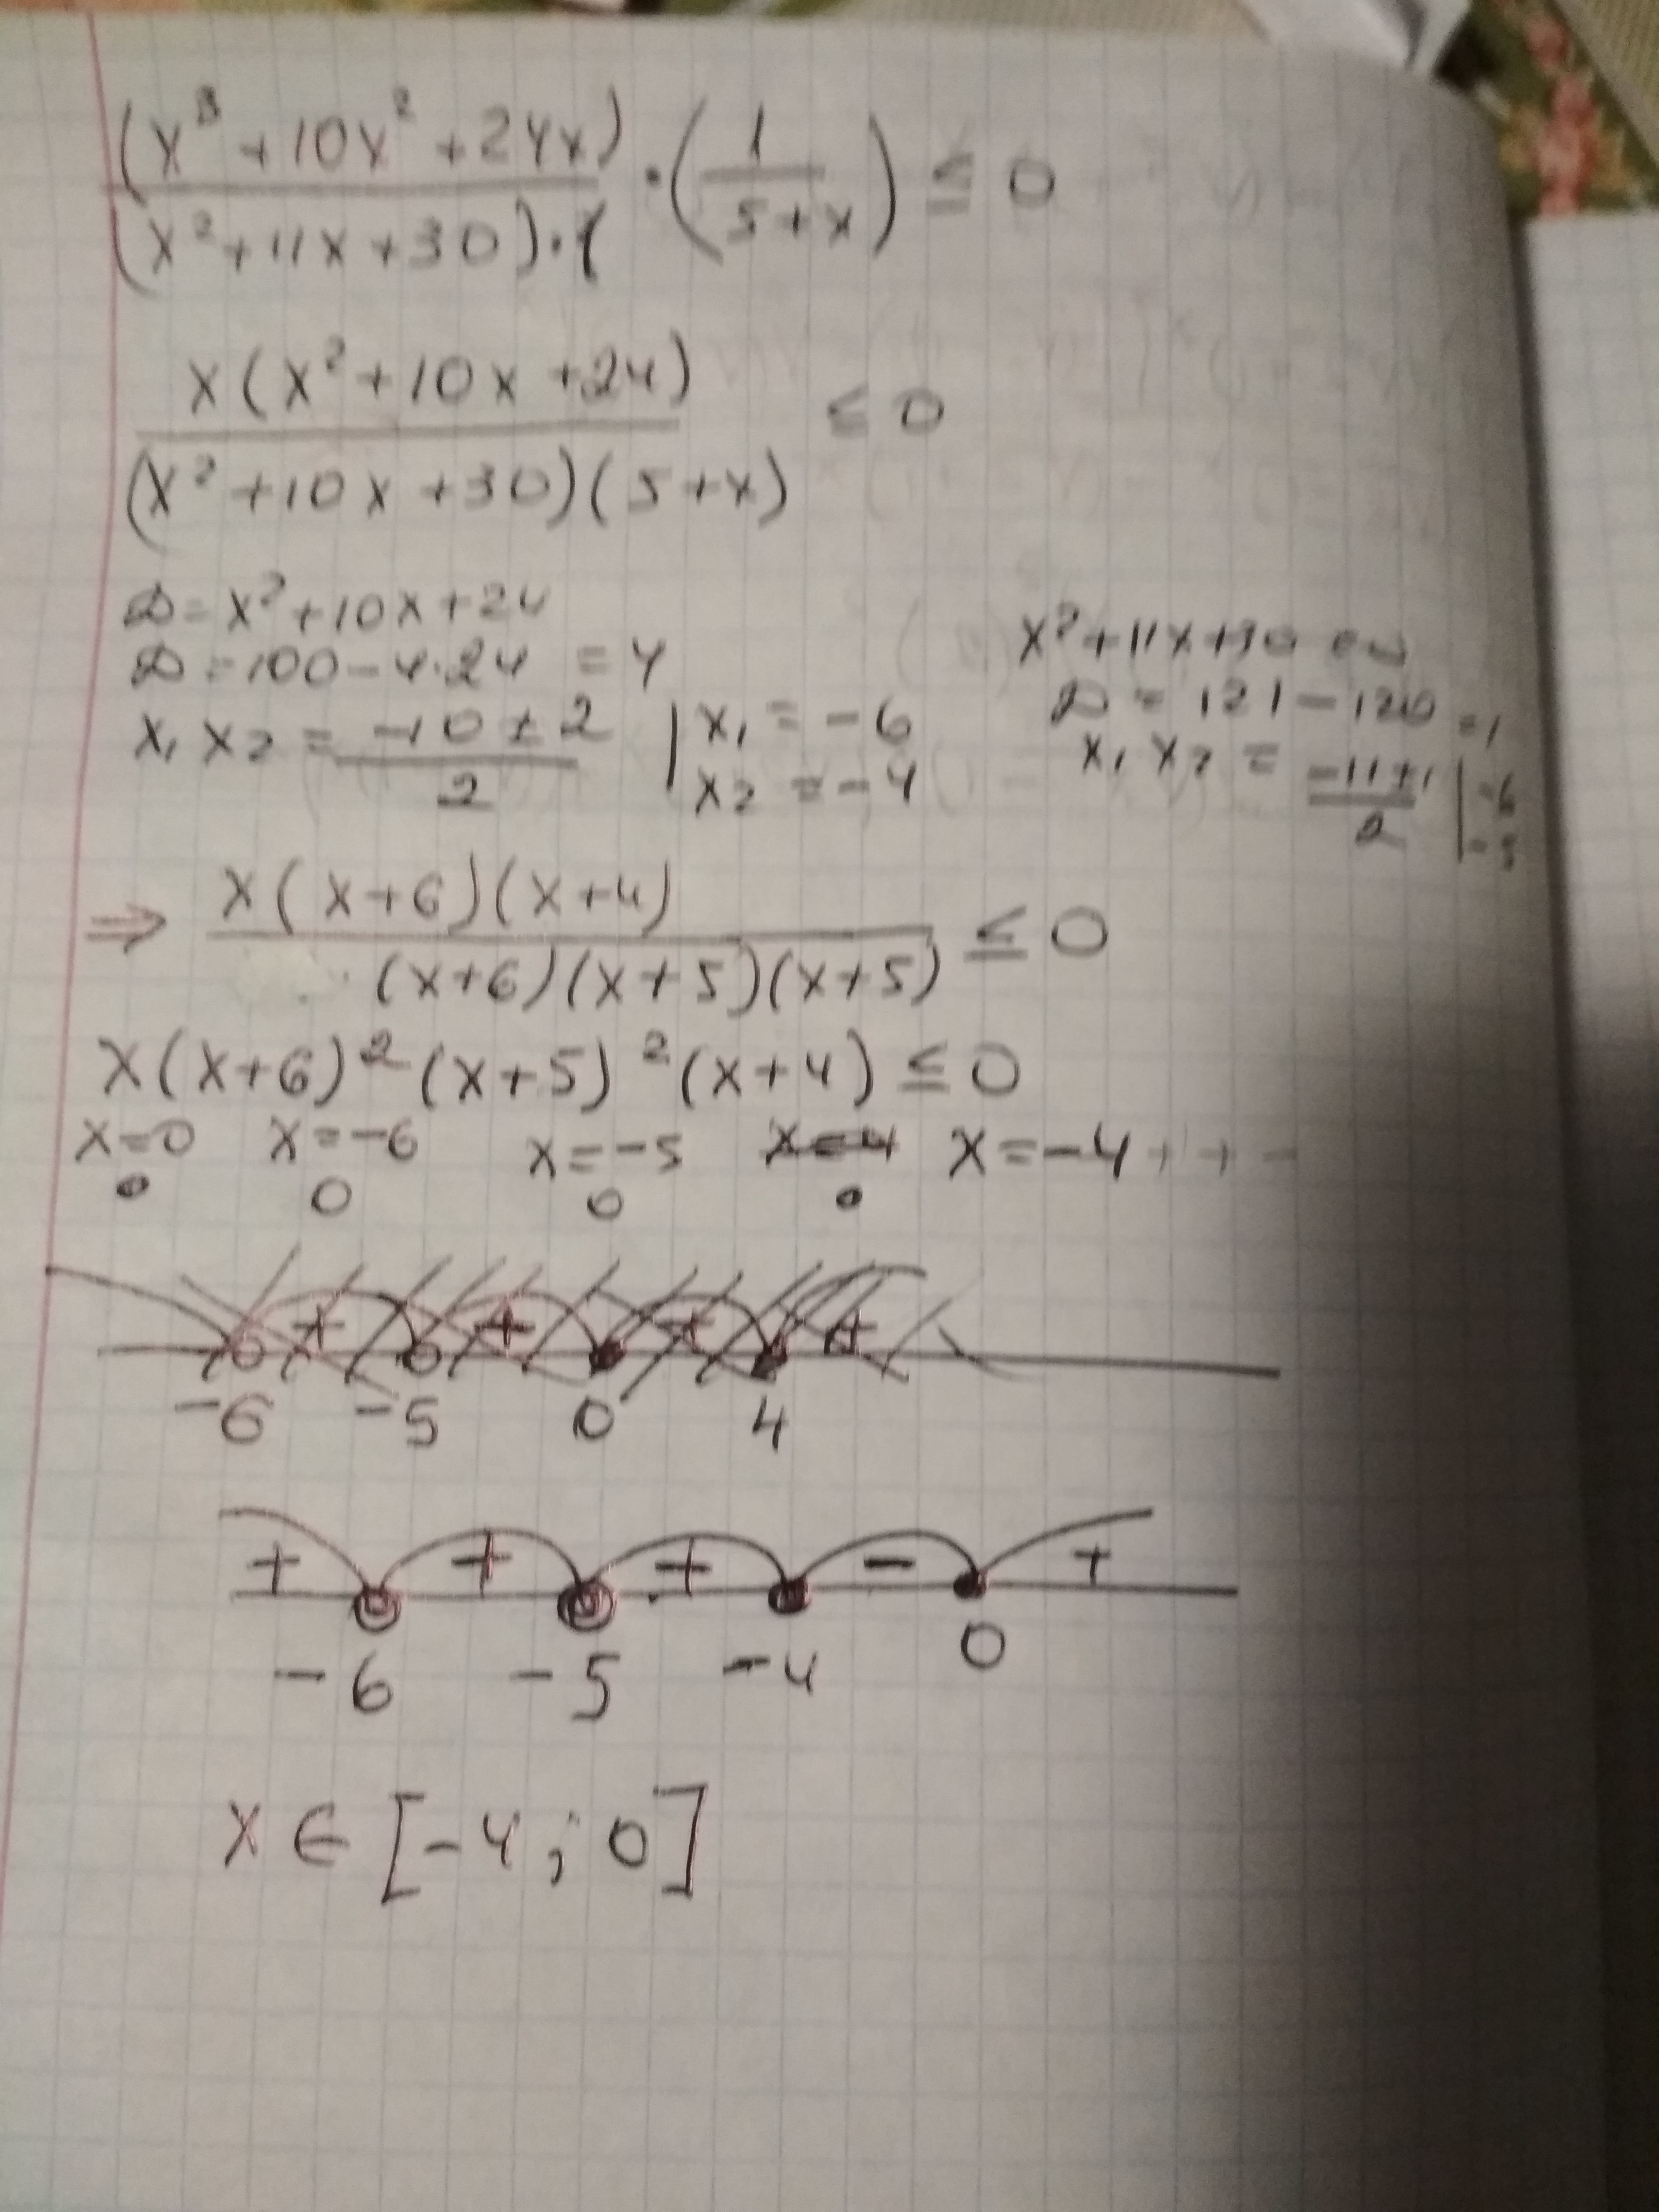 (x³ + 10x² + 24x) / (x² + 11x + 30) · ( · (1 / (5 + x)) ≤ 0
x(x² + 10x + 24) / (x² + 10x + 30)(5 + x) ≤ 0
D = x² + 10x + 24
D = 100 - 4·24 = 4
x₁ x₂ = (-10 ± 2) / 2 | x₁ = -6
x₂ = -4
x² + 11x + 30
D = 121 - 120 = 1
x₁ x₂ = (-11 ± 1) / 2 | -6
-5
⇒ x(x + 6)(x + 4) / (x + 6)(x + 5)(x + 5) ≤ 0
x(x + 6)²(x + 5)²(x + 4) ≤ 0
x = 0 x = -6 x = -5 x = 4 x = -4 + + -
+ + + +
-6 -5 0 4
+ + + - +
-6 -5 -4 0
x ∈ [-4; 0]